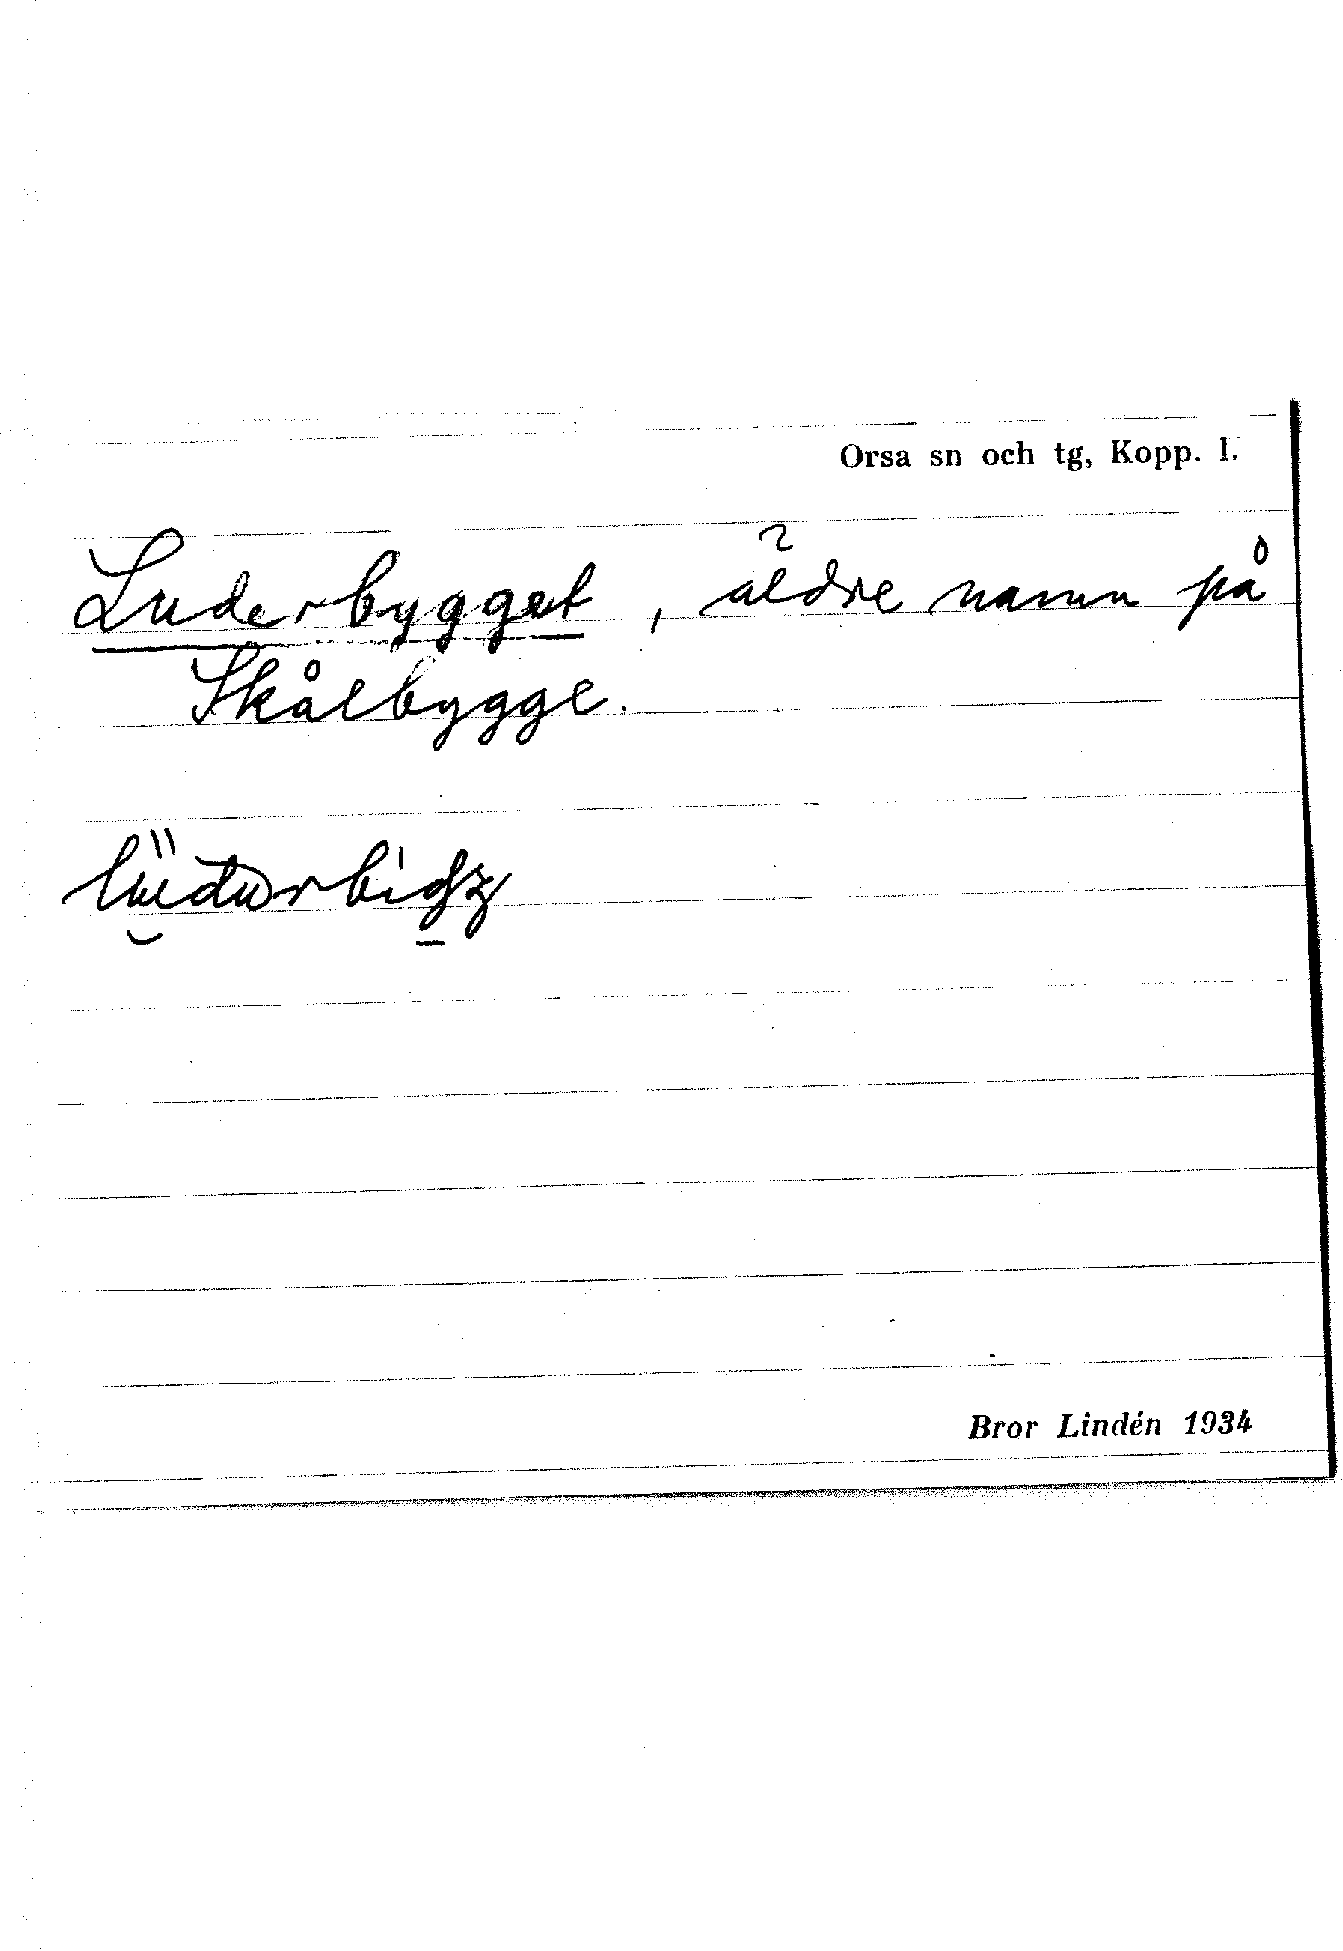 Orsa sn och tg, Kopp. l.
Luderbygget, äldre namn på
Skålbygge.
Bror Lindén 1934